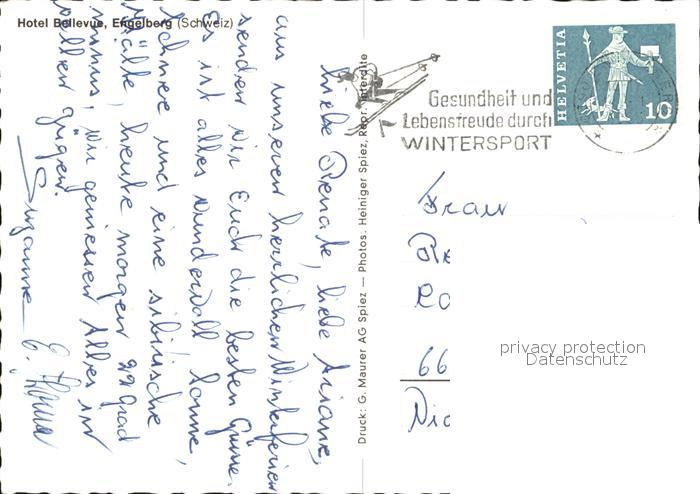 Hotel Bellevue, Engelberg (Schweiz)
Liebe Renate, liebe Ariane,
aus unseren herrlichen Winterferien
senden wir Euch die besten Grüsse.
Es ist alles wundervoll Sonne,
Schnee und eine sibirische
Kälte, heute morgen 29 grad
minus. Wir geniessen Alles in
vollen Zügen.
Suzanne
Druck: G. Maurer AG Spiez — Photos. Heiniger Spiez, Repr. interdite
Gesundheit und
Lebensfreude durch
WINTERSPORT
HELVETIA
10
Frau
Re
66
privacy protection
Datenschutz